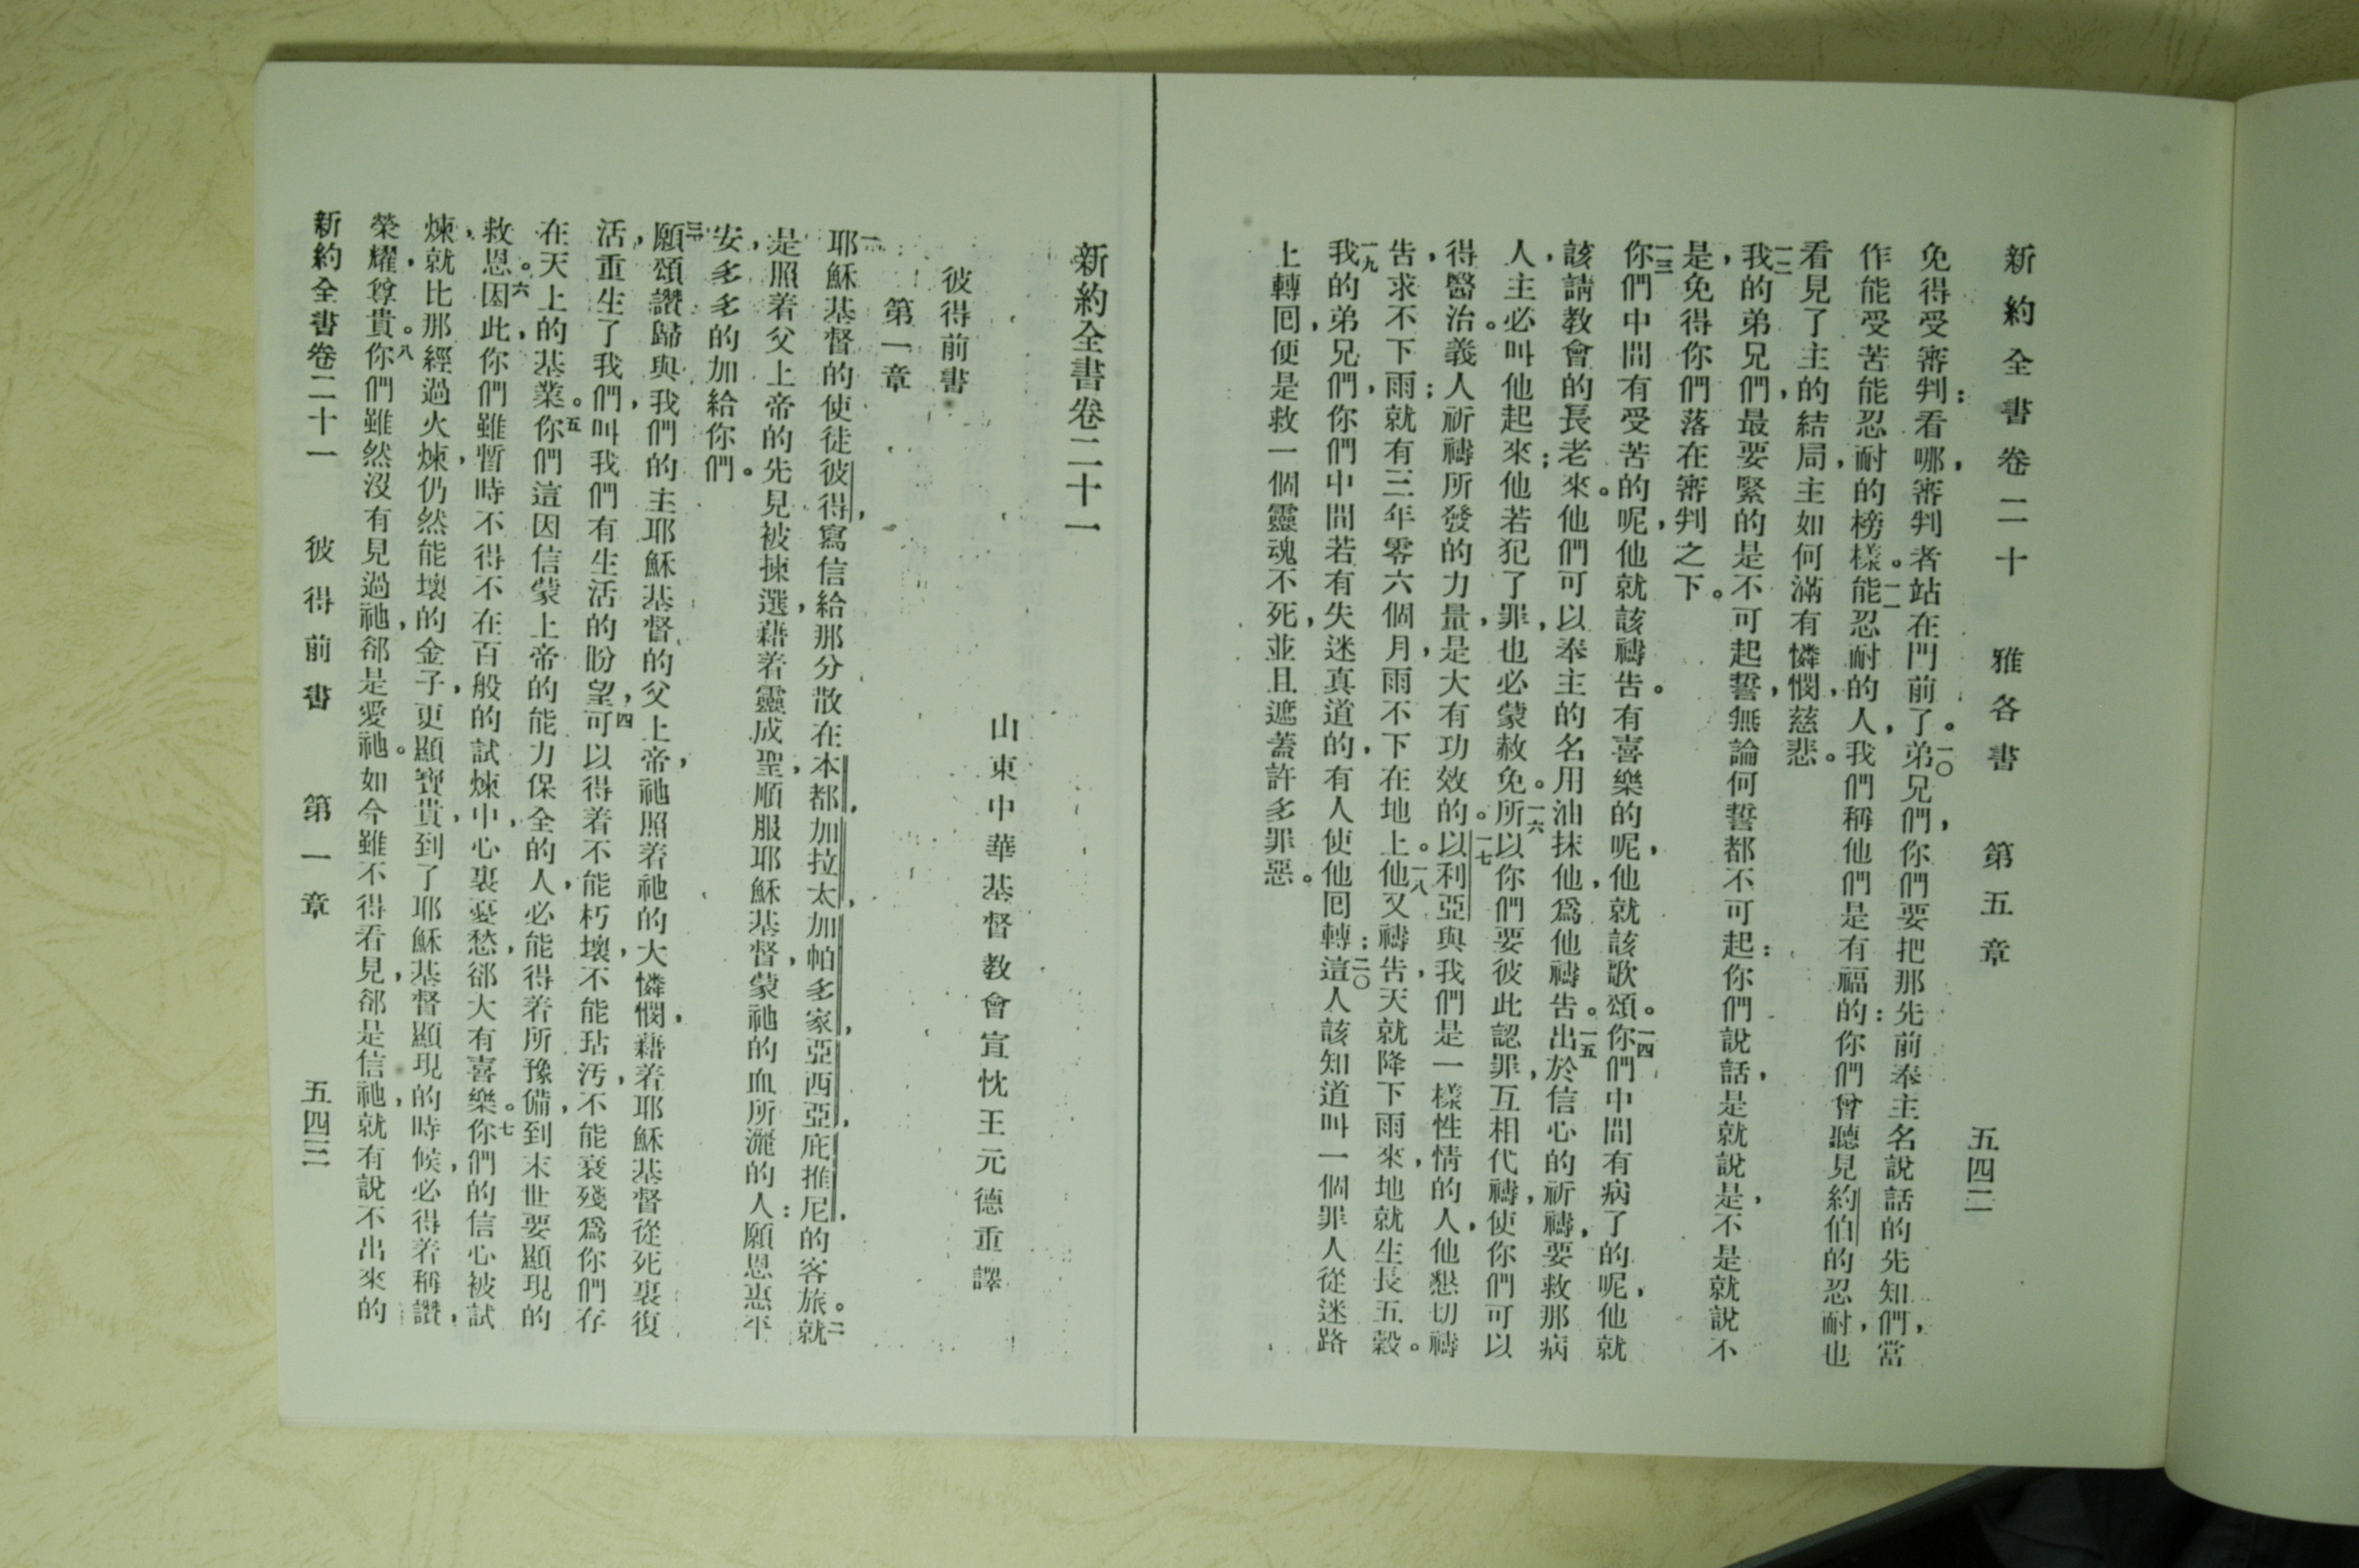 新約全書卷二十　雅各書　第五章　五四二
免得受審判；看哪，審判者站在門前了。一〇弟兄們，你們要把那先前奉主名說話的先知們，當
作能受苦能忍耐的榜樣。一一能忍耐的人，我們稱他們是有福的：你們曾聽見約伯的忍耐，也
看見了主的結局，主如何滿有憐憫，慈悲。
一二我的弟兄們，最要緊的是不可起誓，無論何誓都不可起：你們說話，是就說是，不是就說不
是，免得你們落在審判之下。
一三你們中間有受苦的呢，他就該禱告。有喜樂的呢，他就該歌頌。一四你們中間有病了的呢，他就
該請教會的長老來。他們可以奉主的名用油抹他，爲他禱告。一五出於信心的祈禱，要救那病
人，主必叫他起來；他若犯了罪，也必蒙赦免。一六所以你們要彼此認罪，互相代禱，使你們可以
得醫治。義人祈禱所發的力量，是大有功效的。一七以利亞與我們是一樣性情的人，他懇切禱
告，求不下雨，就有三年零六個月，雨不下在地上。一八他又禱告，天就降下雨來，地就生長五穀。
一九我的弟兄們，你們中間若有失迷真道的，有人使他囘轉；二〇這人該知道叫一個罪人從迷路
上轉囘，便是救一個靈魂不死，並且遮蓋許多罪惡。
新約全書卷二十一
山東中華基督教會宣忱王元德重譯
彼得前書
第一章
一耶穌基督的使徒彼得，寫信給那分散在本都，加拉太，加帕多家，亞西亞，庇推尼，的客旅。二就
是照着父上帝的先見被揀選，藉着靈成聖，順服耶穌基督，蒙祂的血所灑的人：願恩惠平
安，多多的加給你們。
三願頌讚歸與我們的主耶穌基督的父上帝，祂照着祂的大憐憫，藉着耶穌基督從死裏復
活，重生了我們，叫我們有生活的盼望，四可以得着不能朽壞，不能玷汚，不能衰殘爲你們存
在天上的基業。五你們這因信蒙上帝的能力保全的人，必能得着所豫備，到末世要顯現的
救恩。六因此，你們雖暫時不得不在百般的試煉中，心裏憂愁，郤大有喜樂。七你們的信心被試
煉，就比那經過火煉，仍然能壞的金子，更顯寶貴，到了耶穌基督顯現的時候，必得着稱讚，
榮耀，尊貴。八你們雖然沒有見過祂，郤是愛祂。如今雖不得看見，郤是信祂，就有說不出來的
新約全書卷二十一　彼得前書　第一章　五四三